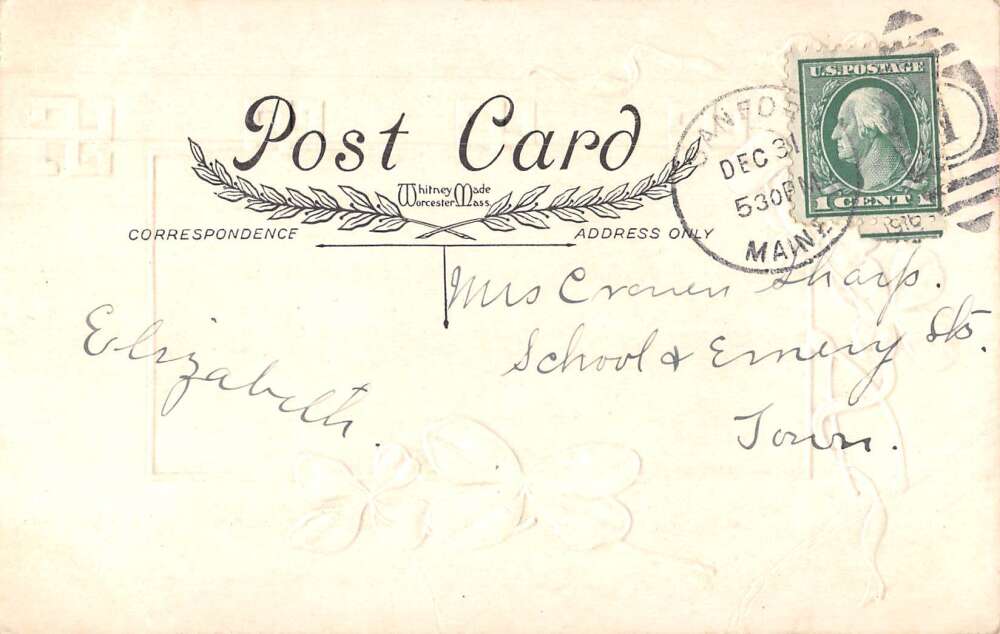 Post Card
Whitney Made
Worcester Mass.
CORRESPONDENCE
ADDRESS ONLY
U.S. POSTAGE
1 CENT 1
SANFORD
DEC 31
530PM
MAINE
1916
1
Mrs Craven Sharp.
School & Emery Sts.
Town.
Elizabeth.